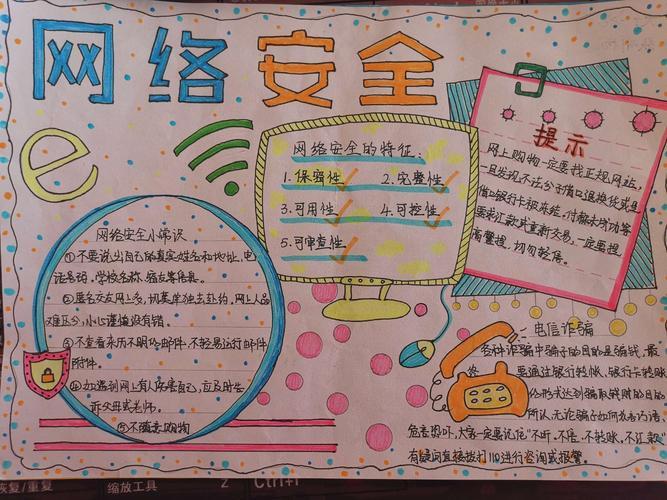 网络安全
网络安全的特征:
1.保密性 2.完整性
3.可用性 4.可控性
5.可审查性
提示
网上购物一定要找正规网站,
一旦发现不法分子借口退换货或是
借口银行卡被冻结,付款未成功等
要求汇款或重新交易,一定要提
高警惕,切勿轻信。
网络安全小常识
①不要说出自己的真实姓名和地址,电
话号码,学校名称,
②匿名交友网上多,切莫单独去赴约,网上人品
难区分,小心谨慎没有错。
③不查看来历不明的邮件,不轻易运行邮件
附件。
④如遇到网上有人伤害自己,应及时告
诉父母或老师。
⑤不随意购物
电信诈骗
各种诈骗中骗子的目的是骗钱,最
要通过银行转帐,银行卡转账
形式达到骗取钱财的目的
所以,无论骗子如何花言巧语,
危言恐吓,大家一定要记住"不听,不信,不转账,不汇款"
有疑问直接拨打110进行咨询或报警。
恢复/重复 缩放工具 Z Ctrl+I